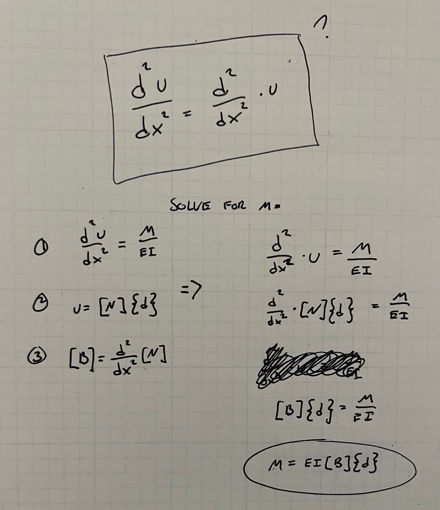 ?
d²u/dx² = d²/dx² · u
SOLVE FOR M.
① d²u/dx² = M/EI
② u = [N]{d}
③ [B] = d²/dx² [N]
=>
d²/dx² · u = M/EI
d²/dx² · [N]{d} = M/EI
EI
[B]{d} = M/EI
M = EI[B]{d}